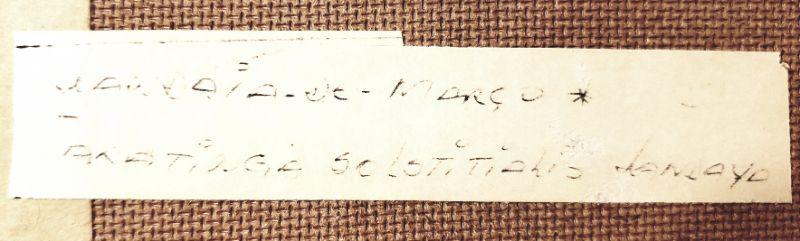 JANDAIA-DE-MARÇO *
ARATINGIA SOLSTITIALIS JANDAYA